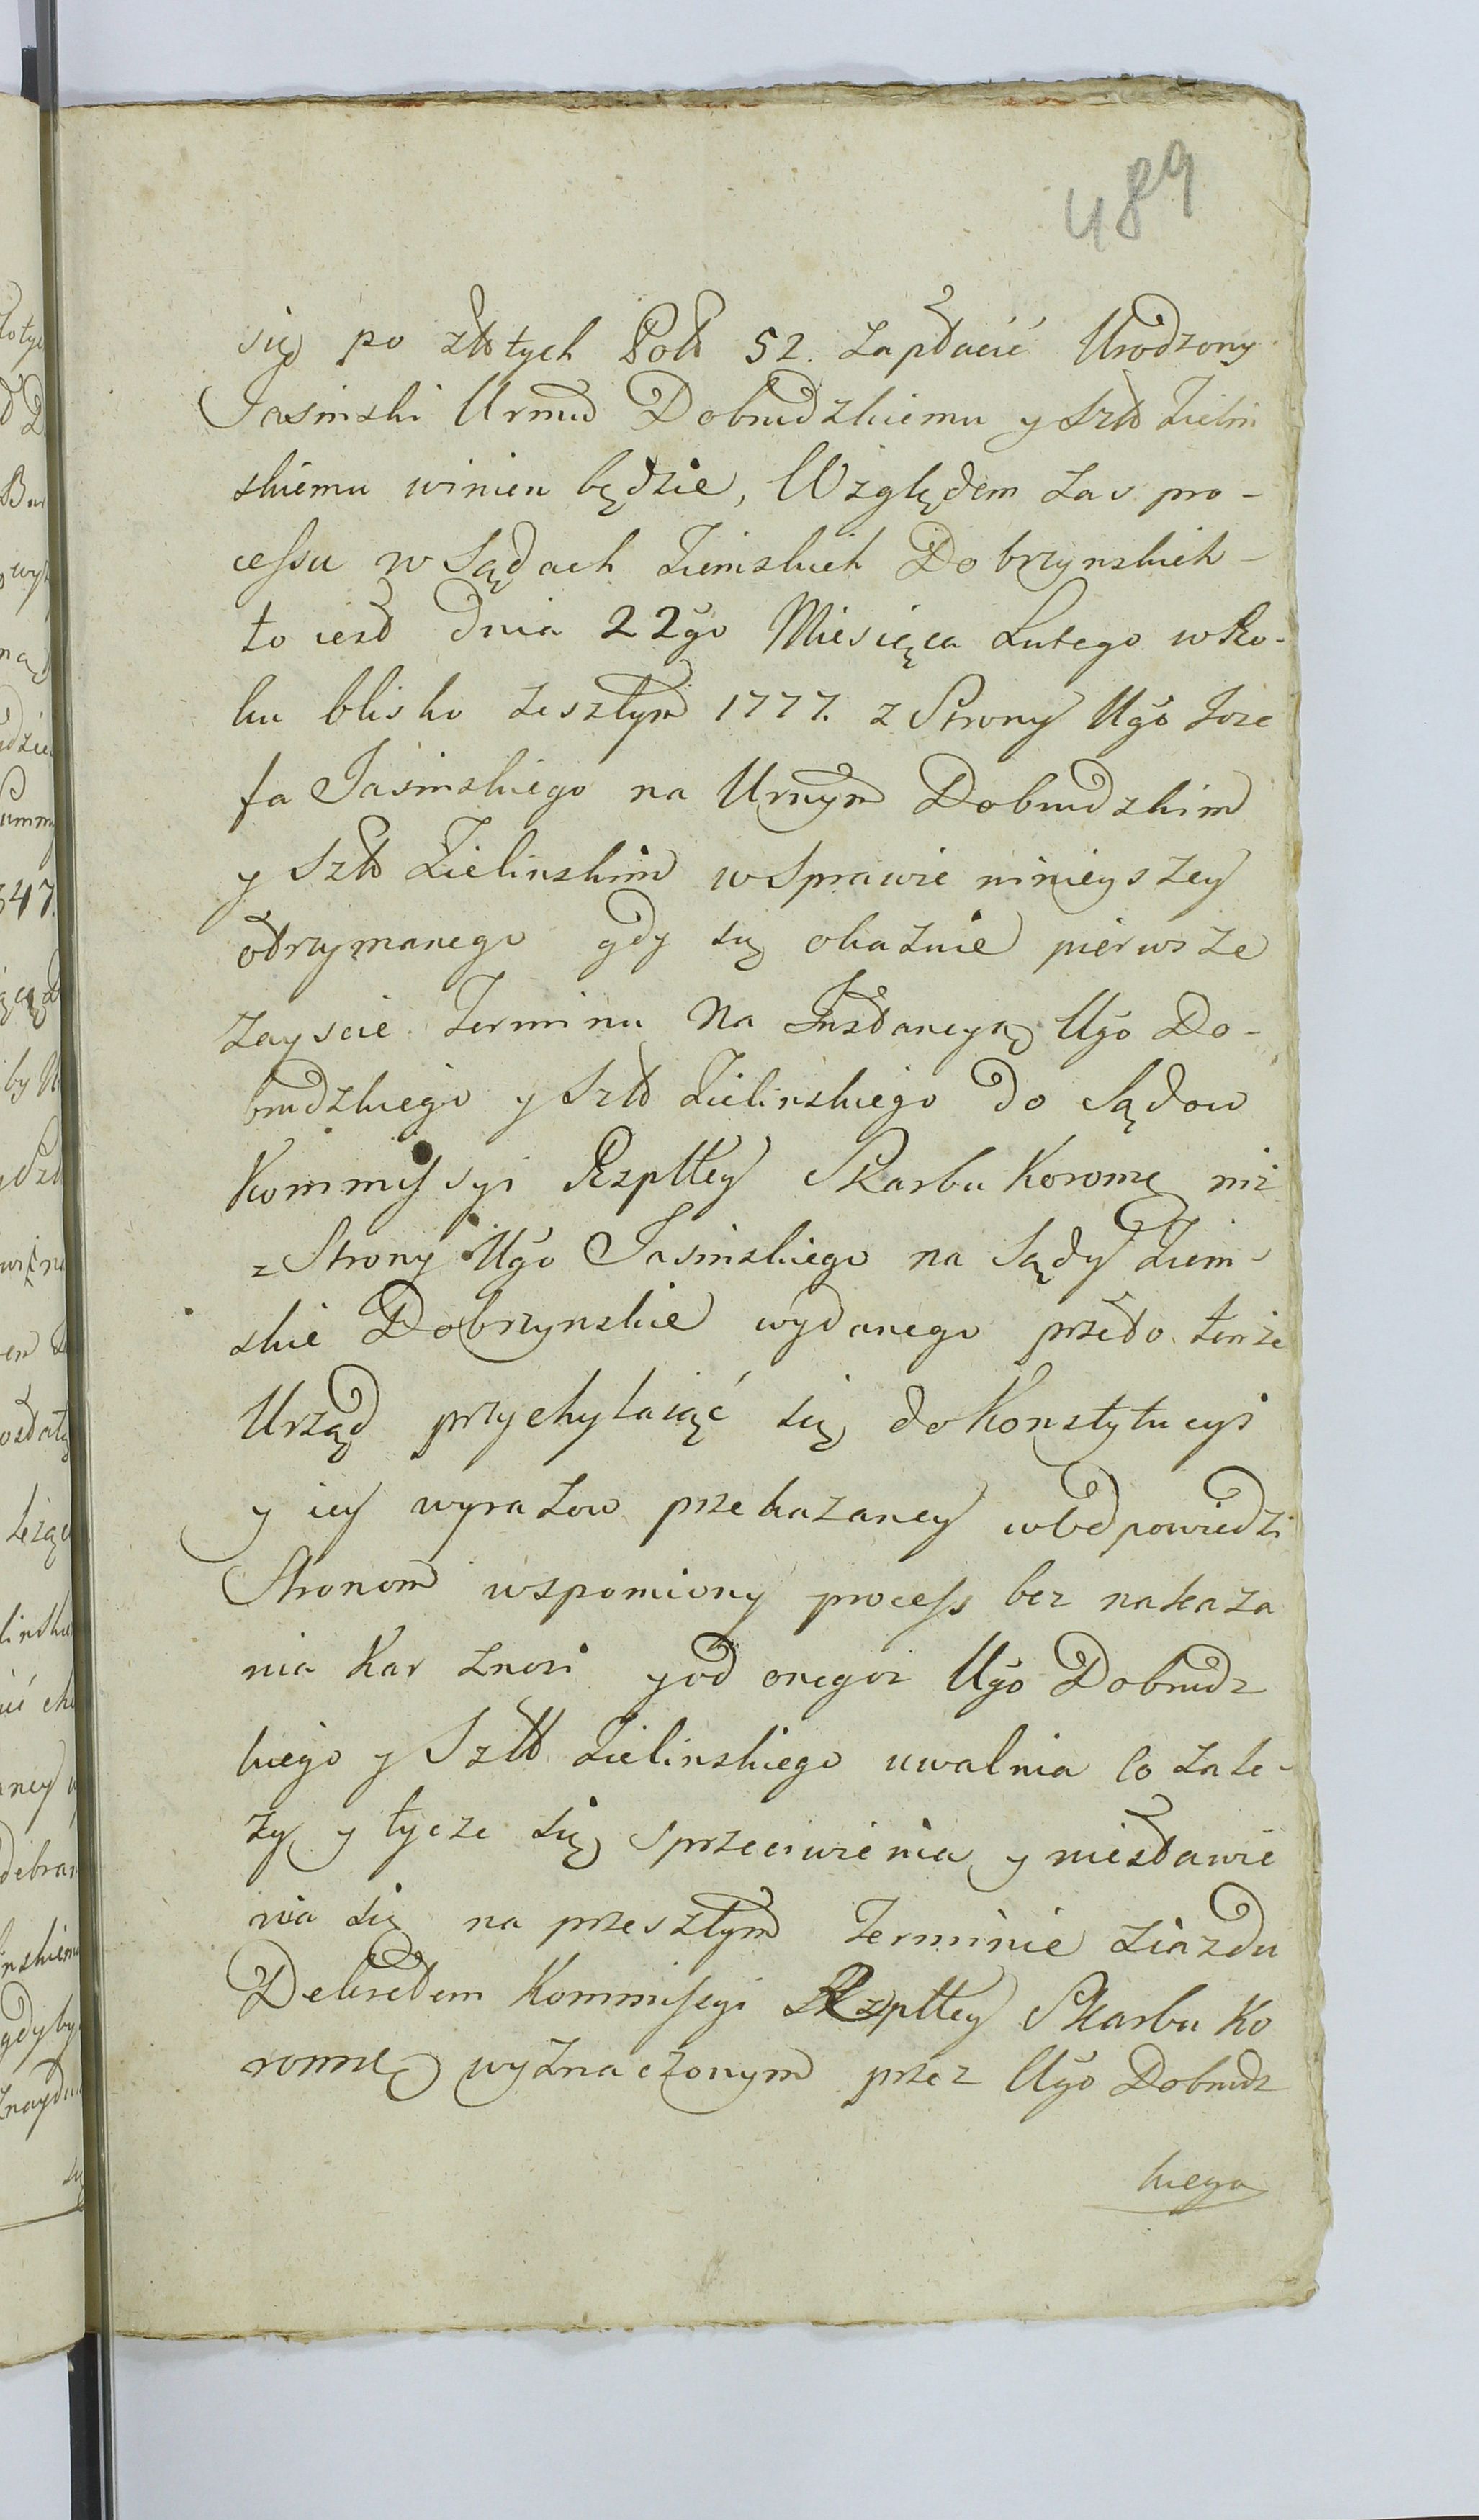 489
się po złotych Pol 52. zapłacić Urodzony
Jasinski Urmu Dobrudzkiemu y Szl Zielin
skiemu winien będzie, Względem zas pro-
cessu w Sądach Ziemskich Dobrzynskich -
to iest dnia 22go Miesięca Lutego w Ro-
ku blisko zeszłym 1777. z Strony Ugo Joze
fa Jasinskiego na Urnym Dobrudzkim
y Szl Zielinskim w Sprawie ninieyszey
otrzymanego gdy się okaznie pierwsze
zayscie Terminu Na Instancyą Ugo Do-
brudzkiego y Szl Zielinskiego do Sądow
Kommissyi Rzpltey Skarbu Koronnę niż
z Strony Ugo Jasinskiego na Sądy Ziem-
skie Dobrzynskie wydanego przeto tenże
Urząd przychylaiąć się do Konstytucyi
y iey wyrazow przekazaney w Odpowiedzi
Stronom wspomiony process bez nakaza
nia Kar znosi y od onegoz Ugo Dobrudz
kiego y Szl Zielinskiego uwalnia Co zale-
zy y tycze się sprzeciwienia y niestawie
nia się na przeszłym Terminie ziazdu
Dekretem Kommissyi Rzpltey Skarbu Ko
ronnę wyznaczonym przez Ugo Dobrudz
kiego